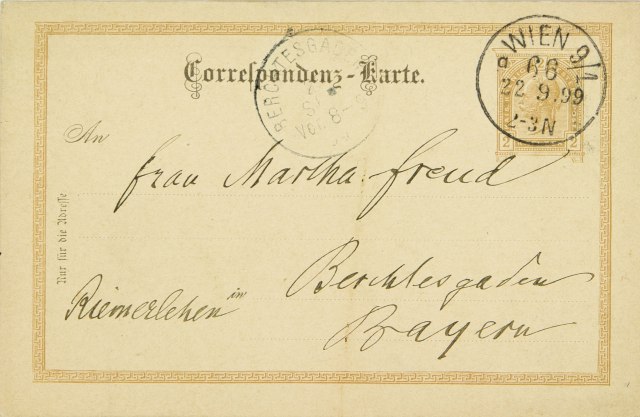 Correspondenz-Karte.
BERCHTESGADEN
WIEN 9/1
66
22.9.99
2-3N
2 2
An
Frau Martha Freud
Berchtesgaden
Riemerlehen in
Bayern
Nur für die Adresse